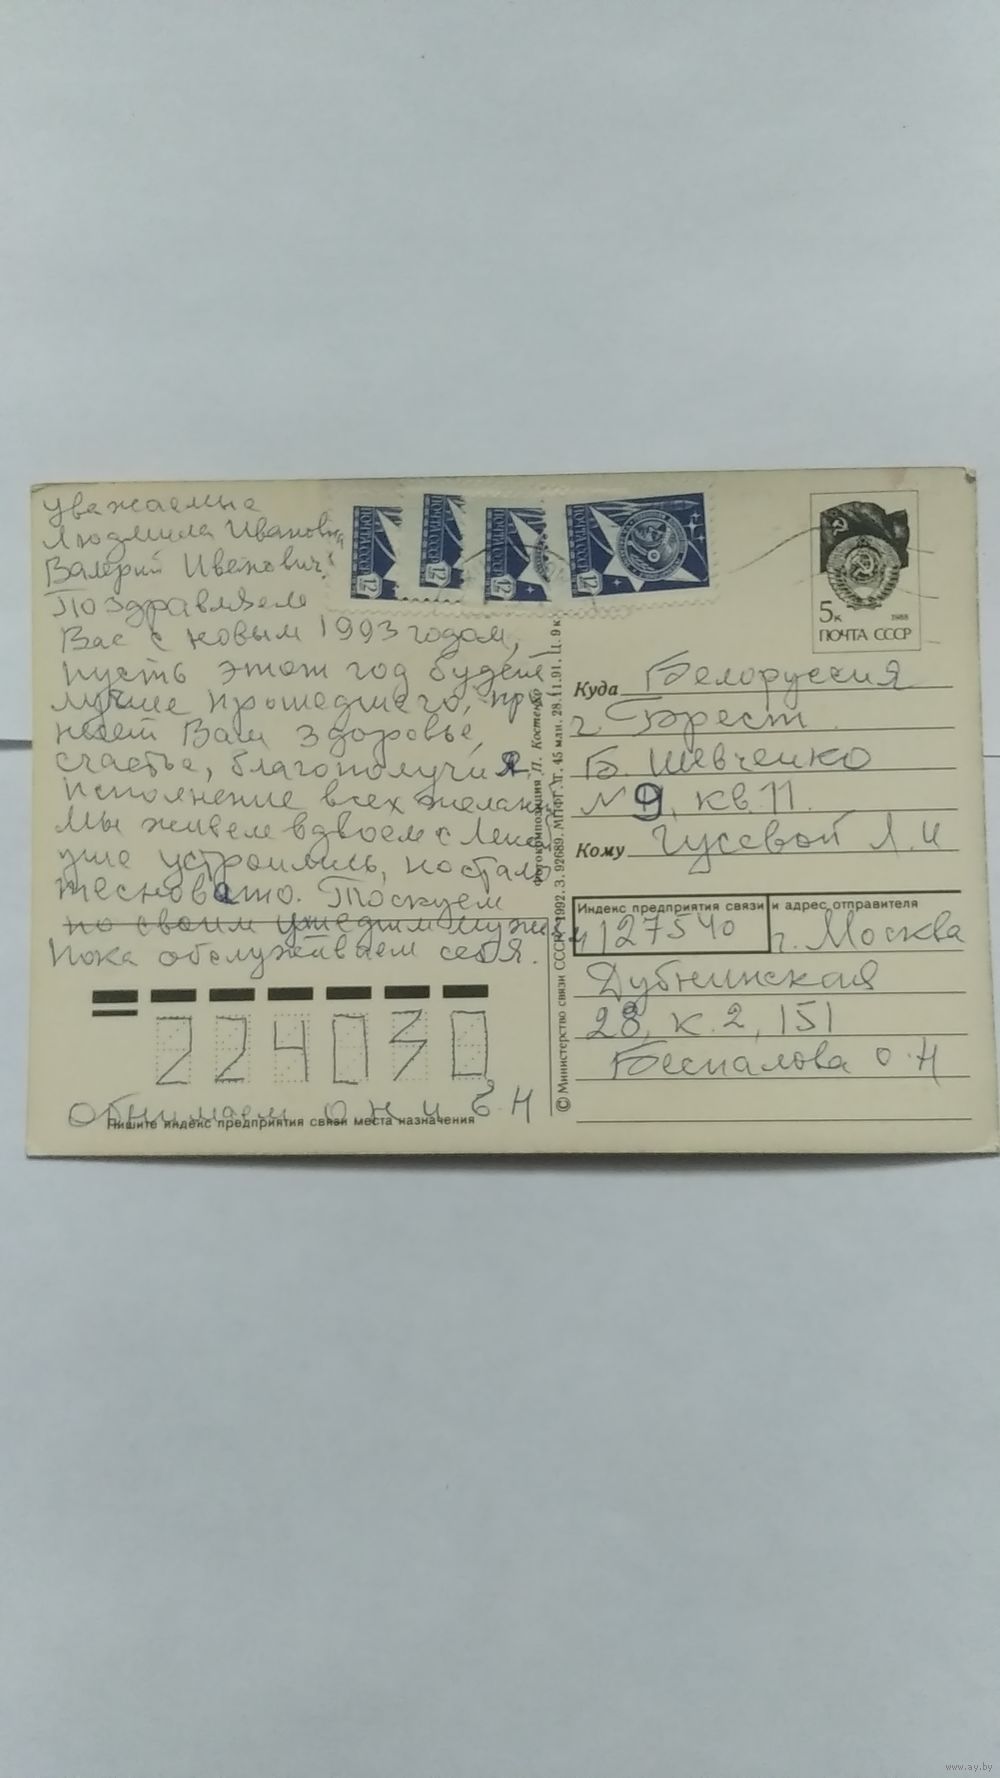 уважаемые
Людмила Ивановна
Валерий Иванович!
Поздравляем
Вас с новым 1993 годом,
пусть этот год будет
лучше прошедшего, при
несет Вам здоровье,
счастье, благополучия,
исполнение всех желаний
Мы живем вдвоем с
уже устроились, но стало
тесновато. Тоскуем
по своим ушедшим мужь
Пока обслуживаем себя.
224030
Обнимаем О Н и Е. Н
Пишите индекс предприятия связи места назначения
ПОЧТА СССР 12
ПОЧТА СССР 12
ПОЧТА СССР 12
ПОЧТА СССР 12
Фотокомпозиция Л. Костенко
© Министерство связи СССР. 1992. З. 92689. МПФГ. Т. 45 млн. 28.11.91. Ц. 9 к.
5к 1988
ПОЧТА СССР
Куда Белоруссия
г. Брест
Б. Шевченко
№ 9, кв. 11.
Кому Гусевой Л. И
Индекс предприятия связи и адрес отправителя
127540 г. Москва
Дубнинская
28, к. 2, 151
Беспалова О. Н
www.ay.by